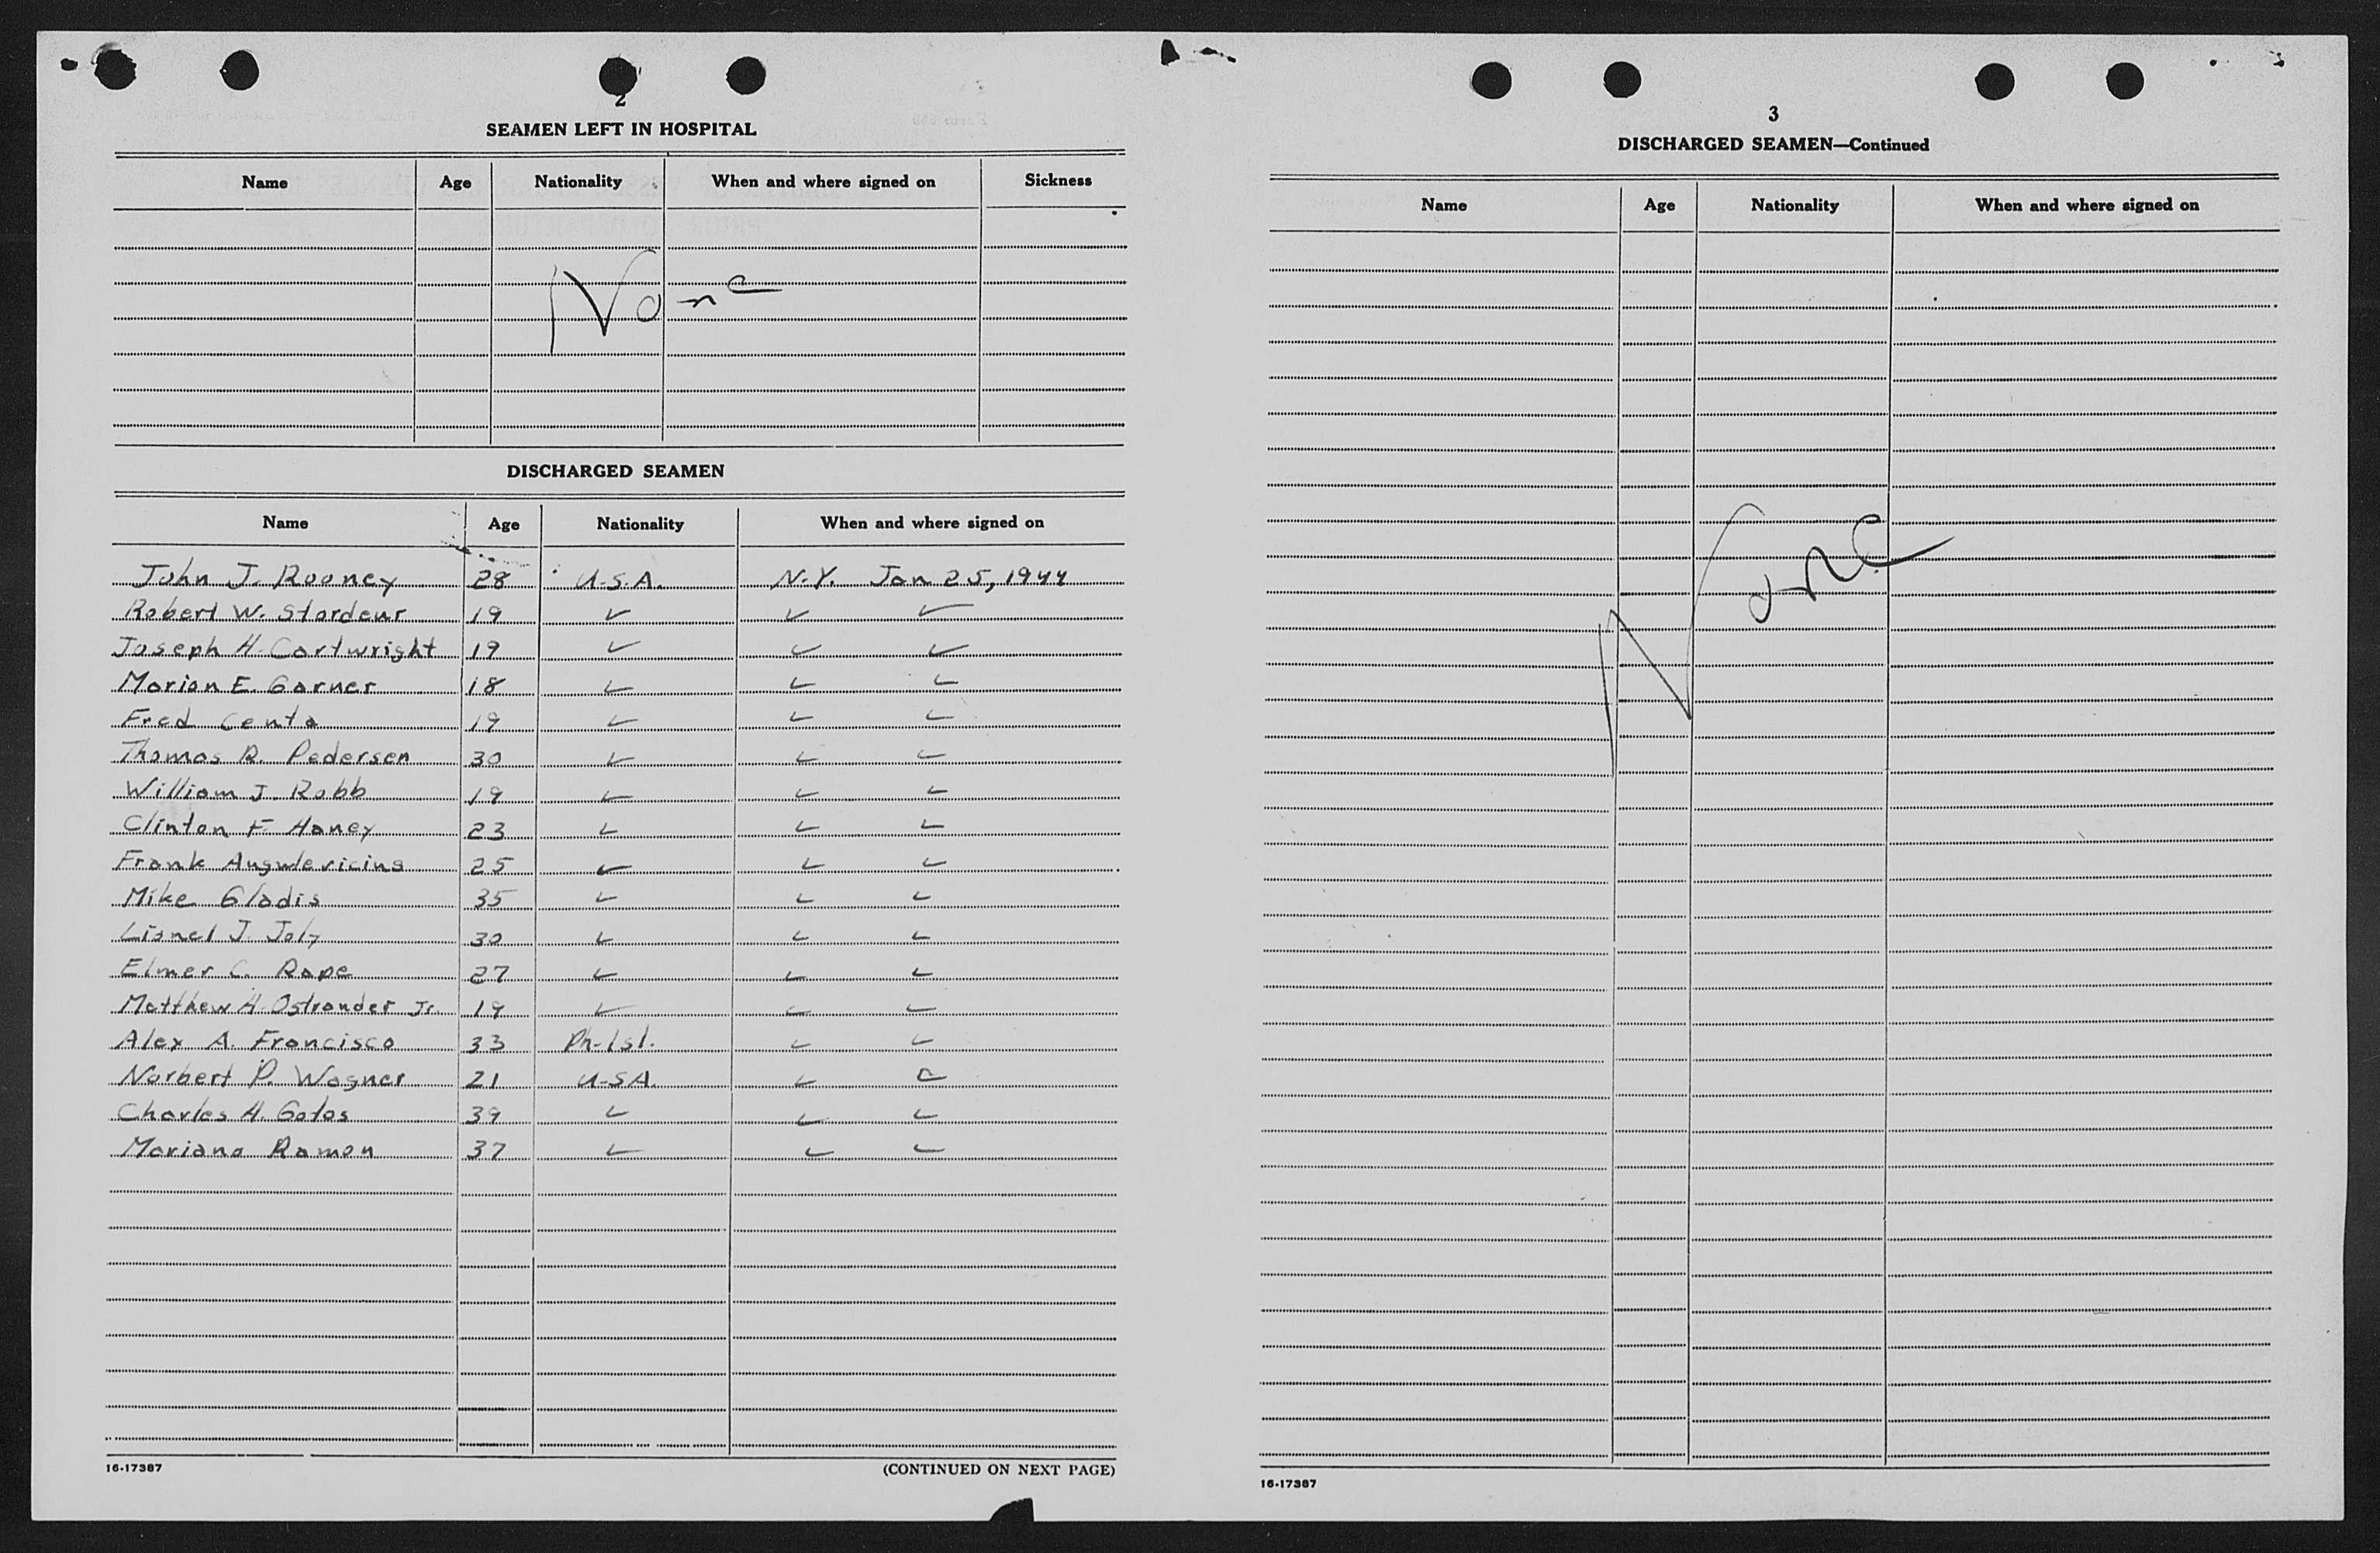 2
SEAMEN LEFT IN HOSPITAL
Name Age Nationality When and where signed on Sickness
None
DISCHARGED SEAMEN
Name Age Nationality When and where signed on
John J. Rooney 28 U.S.A. N.Y. Jan 25, 1944
Robert W. Stordeur 19 ✓ ✓ ✓
Joseph H. Cartwright 19 ✓ ✓ ✓
Marion E. Garner 18 ✓ ✓ ✓
Fred Centa 19 ✓ ✓ ✓
Thomas R. Pedersen 30 ✓ ✓ ✓
William J. Robb 19 ✓ ✓ ✓
Clinton F. Haney 23 ✓ ✓ ✓
Frank 25 ✓ ✓ ✓
Mike Gladis 35 ✓ ✓ ✓
Lionel J. Joly 30 ✓ ✓ ✓
Elmer C. Rape 27 ✓ ✓ ✓
Matthew H. Ostrander Jr. 19 ✓ ✓ ✓
Alex A. Francisco 33 Ph-Isl. ✓ ✓
Norbert P. Wagner 21 U-SA. ✓ ✓
Charles H. Golos 39 ✓ ✓ ✓
Mariano Ramon 37 ✓ ✓ ✓
16-17387 (CONTINUED ON NEXT PAGE)
3
DISCHARGED SEAMEN—Continued
Name Age Nationality When and where signed on
None
16-17387